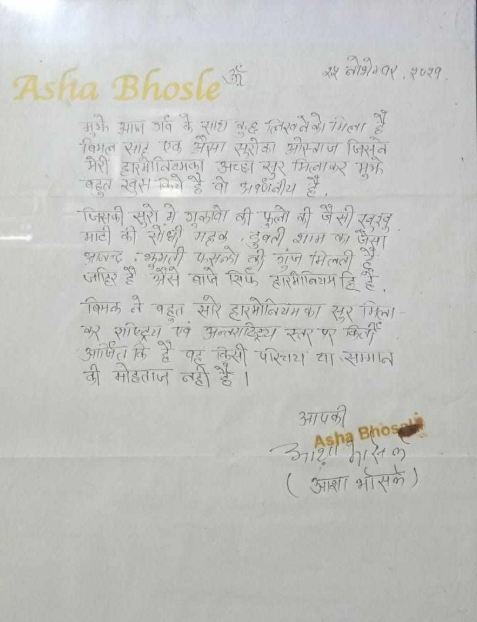 Asha Bhosle ॐ २२ नोभेम्बर, २०२१
मुझे आज गर्व के साथ कुछ लिखनेको मिला है
बिमल साट एक ऐसा सुरोका ओस्ताज जिसने
मेरी हारमोनियमका अच्छा सुर मिलाकर मुझे
बहुत खुस किये है वो अवर्णनीय है.
जिसकी सुरो मे गुलाबो की फुलो की जैसी खुश्बु
माटी की सोंधी महक, डुबती शाम का जैसा
आनन्द, झुमती फसलो की गुंज मिलती है
जाहिर है ऐसे बाजे सिर्फ हारमोनियम हि है.
बिमल ने बहुत सारे हारमोनियम का सुर मिला-
कर राष्ट्रिय एवं अन्तराष्ट्रिय स्तर पर किर्ती
आर्जित कि है वह किसी परिचय या सम्मान
की मोहताज नही है।
आपकी
Asha Bhosale
आशा भोसले
(आशा भोसले)